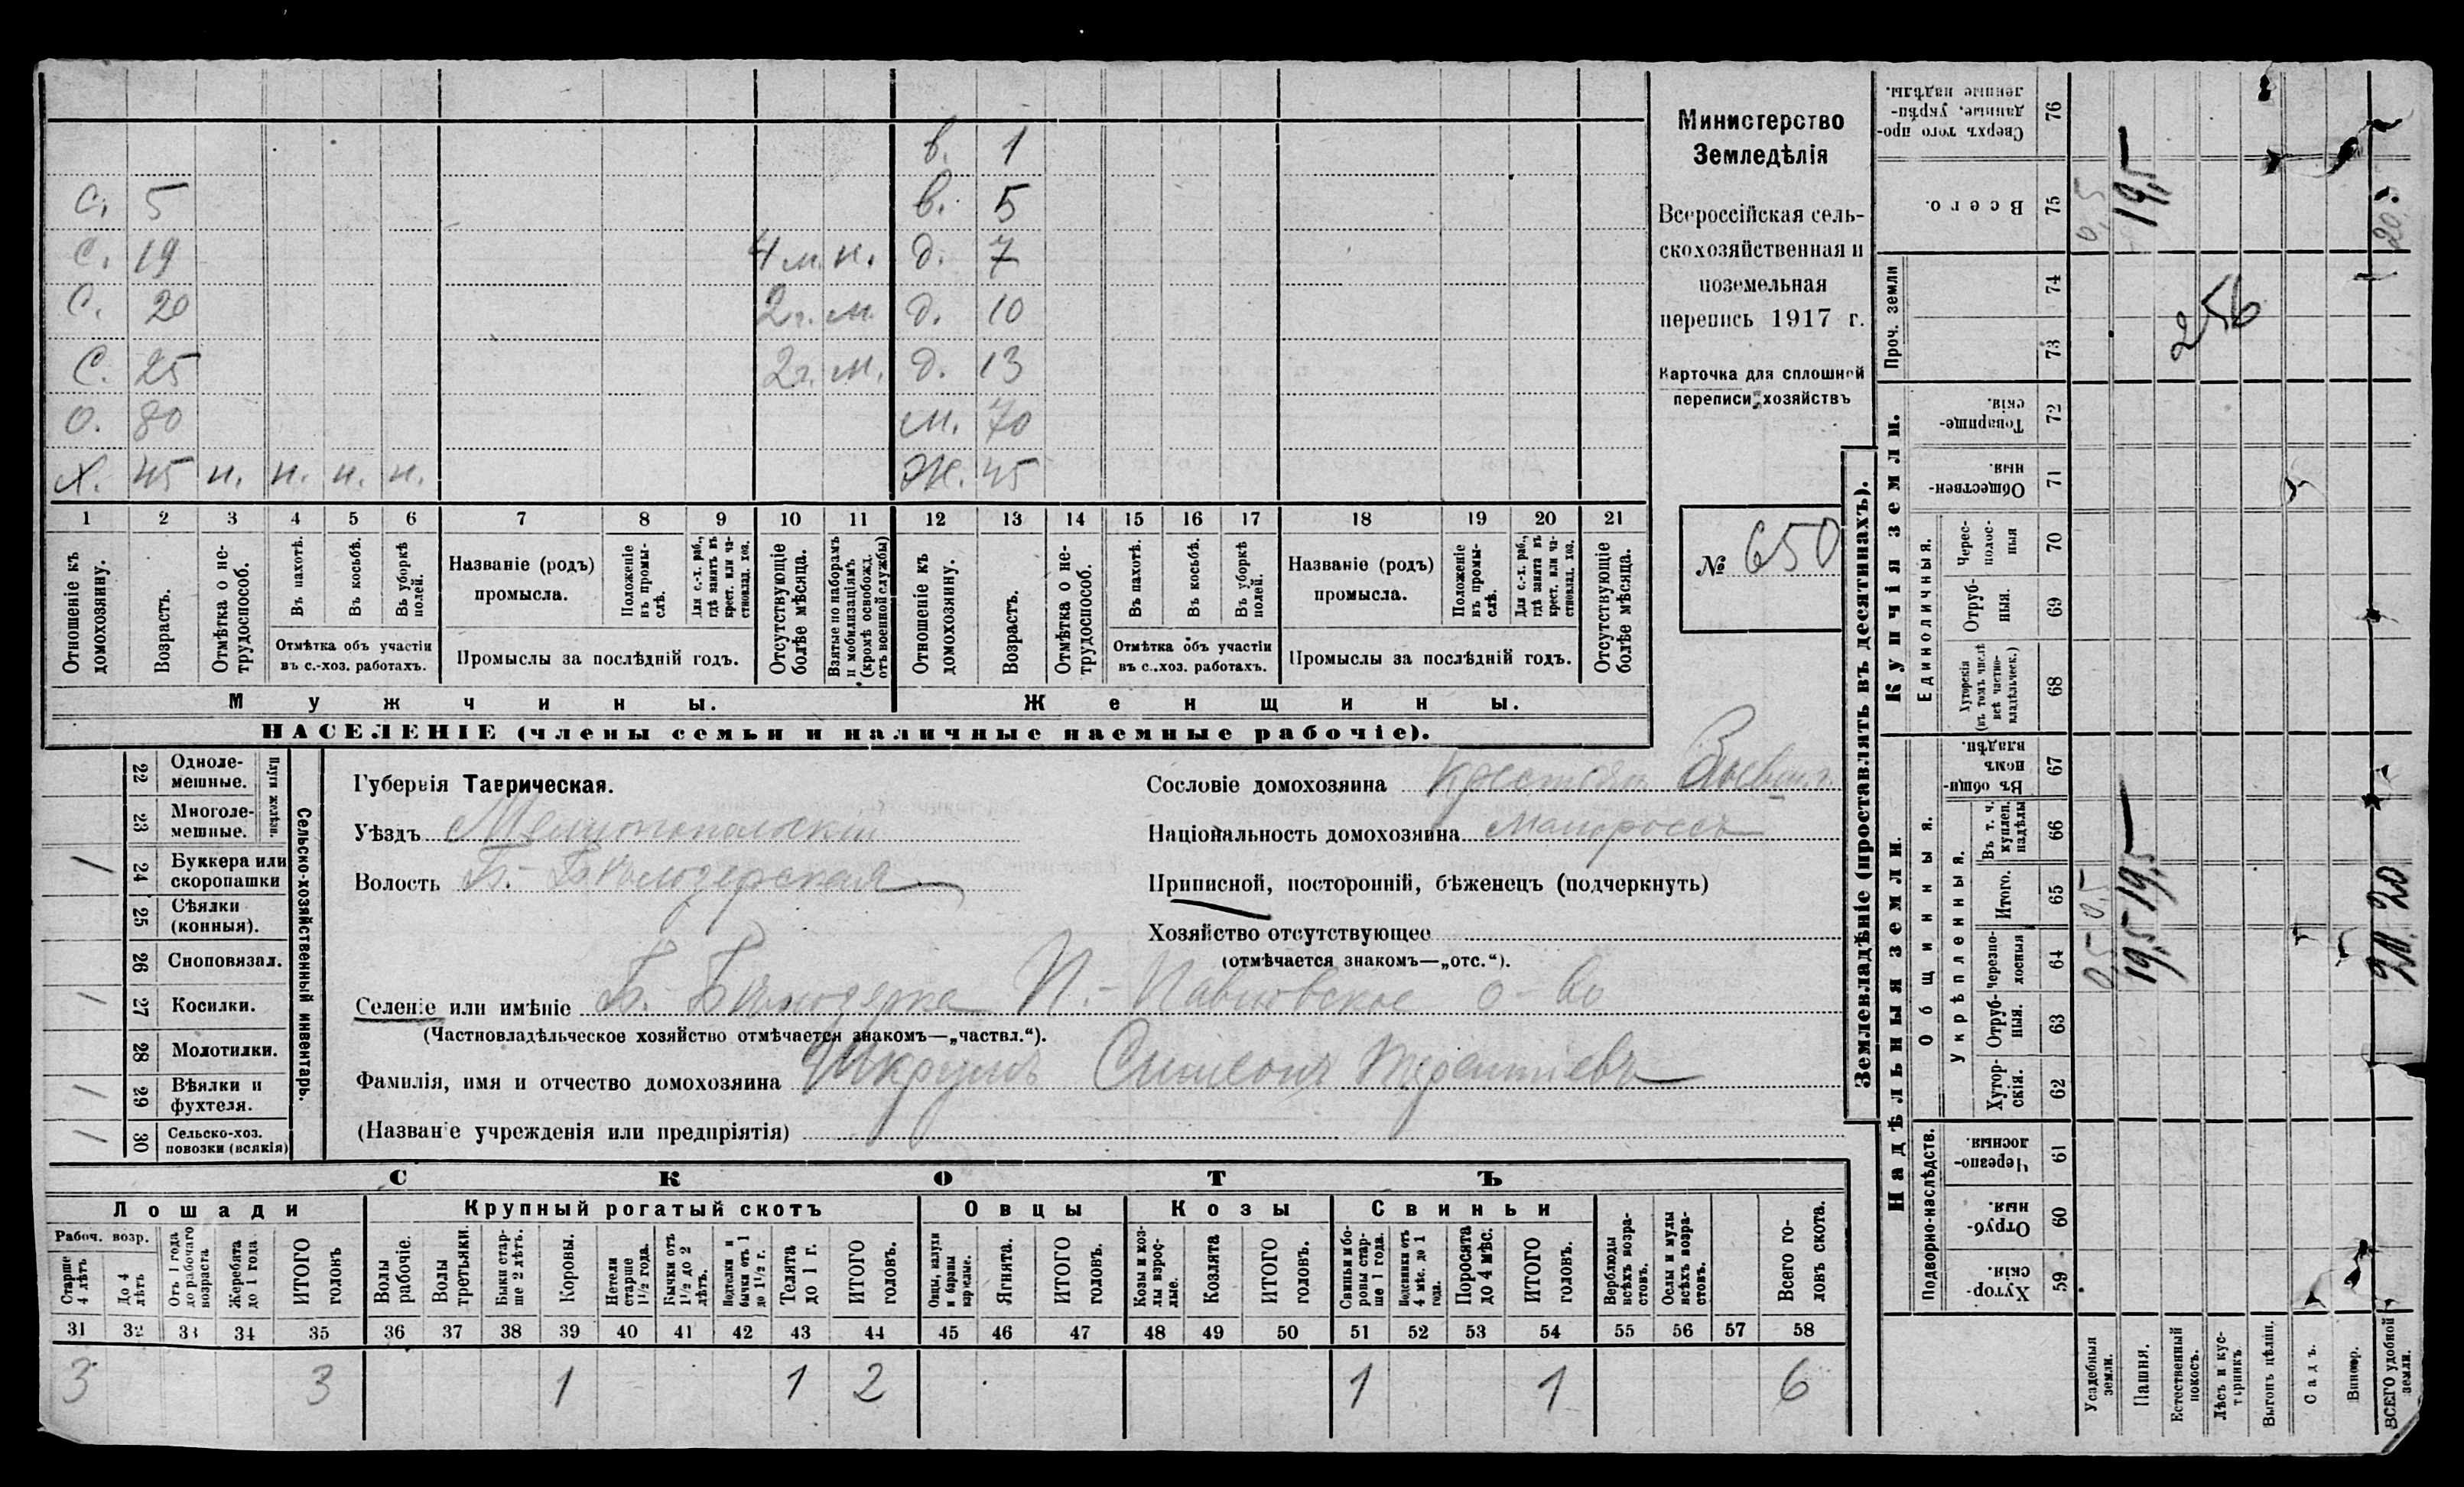 в. 1
с. 5 в. 5
с. 19 4 м. н. д. 7
с. 20 2 г. м. д. 10
с. 25 2 г. м. д. 13
о. 80 м. 70
х. 45 н. н. н. н. ж. 45
1 2 3 4 5 6 7 8 9 10 11 12 13 14 15 16 17 18 19 20 21
Отношеніе къ домохозяину.
Возрастъ.
Отмѣтка о не-трудоспособ.
Въ пахотѣ.
Въ косьбѣ.
Въ уборкѣ полей.
Отмѣтка объ участіи
въ с.-хоз. работахъ.
Названіе (родъ)
промысла.
Положеніе въ промы-слѣ.
Для с.-х. раб., гдѣ занятъ въ крест. или ча-стновлад. хоз.
Промыслы за послѣдній годъ.
Отсутствующіе болѣе мѣсяца.
Взятые по наборамъ и мобилизаціямъ (кромѣ освобожд. отъ военной службы)
Отношеніе къ домохозяину.
Возрастъ.
Отмѣтка о не-трудоспособ.
Въ пахотѣ.
Въ косьбѣ.
Въ уборкѣ полей.
Отмѣтка объ участіи
въ с.-хоз. работахъ.
Названіе (родъ)
промысла.
Положеніе въ промы-слѣ.
Для с.-х. раб., гдѣ занята въ крест. или ча-стновлад. хоз.
Промыслы за послѣдній годъ.
Отсутствующіе болѣе мѣсяца.
Мужчины. Женщины.
НАСЕЛЕНІЕ (члены семьи и наличные наемные рабочіе).
Министерство
Земледѣлія
Всероссійская сель-
скохозяйственная и
поземельная
перепись 1917 г.
Карточка для сплошной
переписи хозяйствъ
№ 650
22 Одноле-мешные.
23 Многоле-мешные.
Плуги желѣзн.
24 Буккера или скоропашки
25 Сѣялки (конныя).
26 Сноповязал.
27 Косилки.
28 Молотилки.
29 Вѣялки и фухтеля.
30 Сельско-хоз. повозки (всякія)
Сельско-хозяйственный инвентарь.
Губернія Таврическая.
Уѣздъ Мелитопольскій
Волость Б.-Бѣлозерская
Селеніе или имѣніе Б.-Бѣлозерка П.-Павловское о-во
(Частновладѣльческое хозяйство отмѣчается знакомъ—„частвл.“).
Фамилія, имя и отчество домохозяина Симеонъ Терентіевъ
(Названіе учрежденія или предпріятія)
Сословіе домохозяина крестьян.
Національность домохозяина малороссъ
Приписной, посторонній, бѣженецъ (подчеркнуть)
Хозяйство отсутствующее
(отмѣчается знакомъ—„отс.“).
СКОТЪ
Лошади Крупный рогатый скотъ Овцы Козы Свиньи
Рабоч. возр.
Старше 4 лѣтъ
До 4 лѣтъ
Отъ 1 года до рабочаго возраста
Жеребята до 1 года
ИТОГО головъ
Волы рабочіе.
Волы третьяки.
Быки стар-ше 2 лѣтъ.
Коровы.
Нетели старше 1 1/2 года.
Бычки отъ 1 1/2 до 2 лѣтъ.
Подтелки и бычки отъ 1 до 1 1/2 г.
Телята до 1 г.
ИТОГО головъ.
Овцы, валухи и бараны взрослые.
Ягнята.
ИТОГО головъ.
Козы и коз-лы взрос-лые.
Козлята
ИТОГО головъ.
Свиньи и бо-ровы стар-ше 1 года.
Подсвинки отъ 4 мѣс. до 1 года.
Поросята до 4 мѣс.
ИТОГО головъ.
Верблюды всѣхъ возра-стовъ.
Ослы и мулы всѣхъ возра-стовъ.
Всего го-ловъ скота.
31 32 33 34 35 36 37 38 39 40 41 42 43 44 45 46 47 48 49 50 51 52 53 54 55 56 57 58
3 3 1 1 2 1 1 6
Землевладѣніе (проставлять въ десятинахъ).
Надѣльныя земли. Купчія земли. Проч. земли
Подворно-наслѣдств.
Общинныя.
Укрѣпленныя.
Единоличныя.
Хутор-скія. 59
Отруб-ныя. 60
Черезпо-лосныя. 61
Хутор-скія. 62
Отруб-ныя. 63
черезпо-лосныя 64
Итого. 65
Въ т. ч. куплен. надѣлы 66
Въ общи-номъ владѣн. 67
Хуторскія (въ томъ числѣ всѣ частно-владѣльческ.) 68
Отруб-ныя. 69
Черес-полос-ныя 70
Обществен-ныя. 71
Товарище-скія. 72
73
74
Всего. 75
Сверхъ того про-данные, укрѣп-ленные надѣлы. 76
Усадебныя земли. 0,5 0,5 0,5
Пашня. 19,5 19,5 19,5
Естественный покосъ.
Лѣсъ и кус-тарникъ.
Выгонъ цѣлин.
Садъ.
Виногр.
ВСЕГО удобной земли. 20 20 20
256